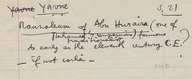 Yavne Yavne S, 21
Mausoleum of Abu Huraira (one of
Muhammad's companions) famous
so early as the eleventh century C.E.?
— if not earlier —